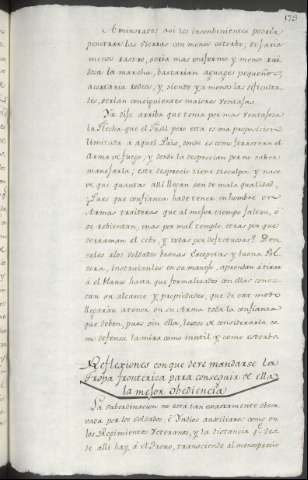 173
Aminorados asi los inconbenientes podria
penetrar las tierras con menos estorbo, dejaria
menos rastro, seria mas uniforme y menos rui-
dosa la marcha, bastarian aguages pequeños,
acortaria rodeos, y siendo ya menos las dificulta-
des, serian consiguientes maiores ventajas.
Ya dije arriba que tenia por mas ventajosa
la flecha que el fusil pero esta es una proposicion
limitada a aquel Pais, donde es como forastera el
Arma de fuego, y donde la desprecian por no saber
manejarla; este desprecio tiene disculpa y nace
de que quantas alli llegan son de mala qualidad,
¿Pues que confianza ha de tener un hombre en
Armas traidoras que al mejor tiempo faltan, ó
se rebientan; unas por mal temple, otras por que
derraman el cebo, y todas por defectuosas? Den-
seles a los soldados buenas Escopetas y buena Pol-
bora, instruiendolos en su manejo, aprendan á tirar
á el blanco hasta que formalizados con ellas conoz-
can su alcance y propiedades, que de este modo
llegarán á tener en su Arma toda la confianza
que deben, pues sin ella, lexos de considerarla co-
mo defensa la miran como inutil y como estorbo
Reflexiones con que debe mandarse la
tropa fronteriza para conseguir de ella
la mejor obediencia
La subordinacion no está tan exactamente obser-
vada por los soldados, é Indios auxiliares como en
los Regimientos Veteranos, y la distancia que de
alli hay, á el Trono, trasciende al menosprecio